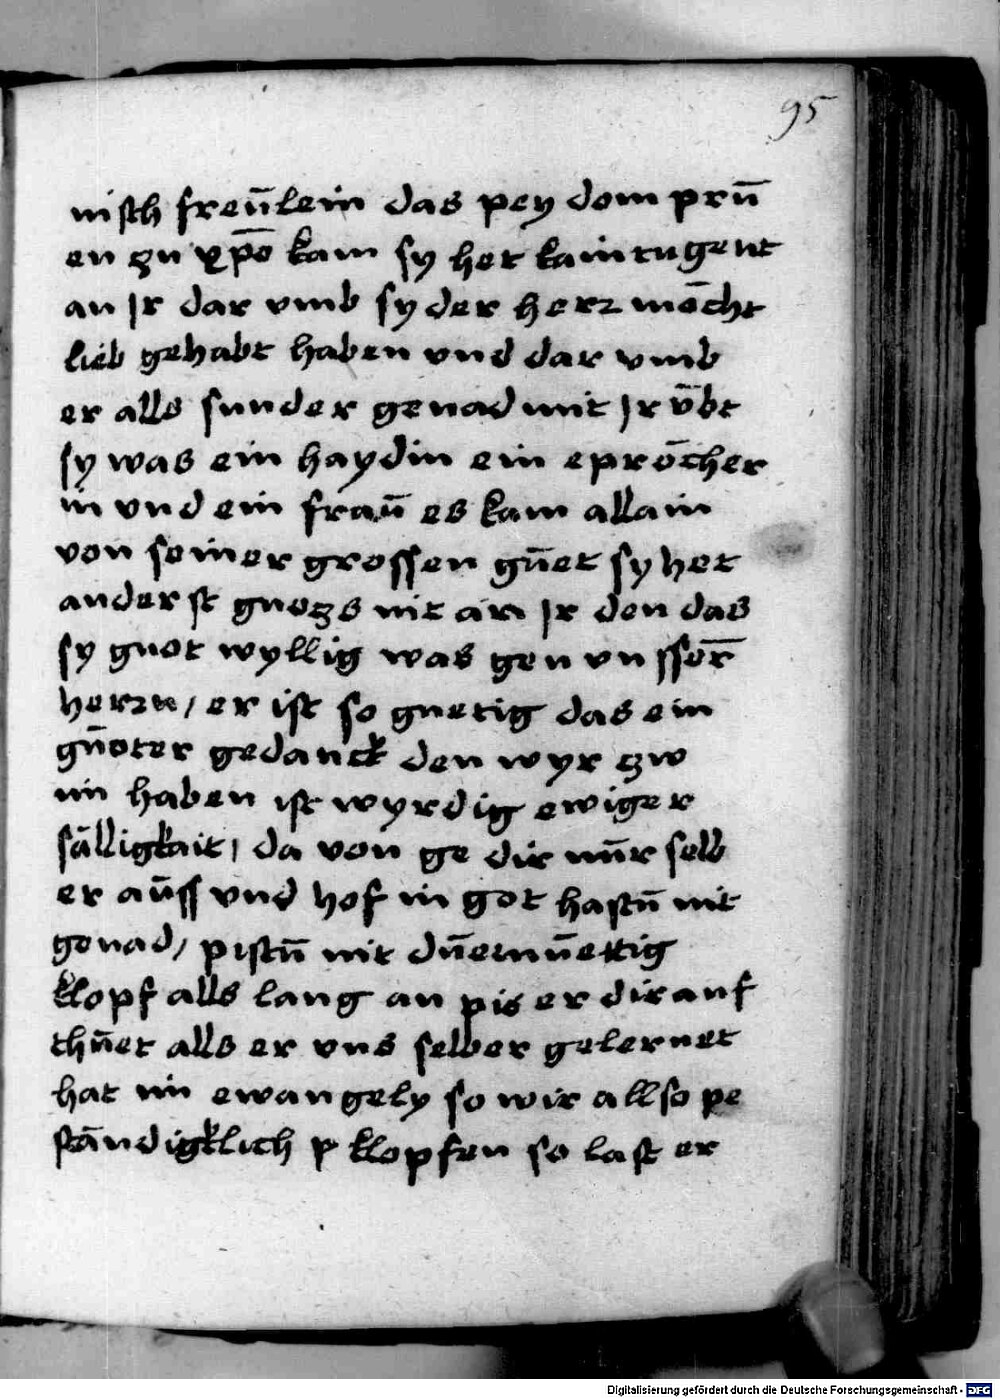 95
nisch freu̅lein das pey dom pru̅
en zu xp̅o kam sy het kain tugent
an Jr dar vmb sy der herz möcht
lieb gehabt haben vnd dar vmb
er alls sunder genad mit Jr v̈bt
sy was ein haydin ein epröcher
in vnd ein frau̅ es kam allain
von seiner grossen gu̅et sy het
anderst guotzs nit an Jr den das
sy guot wyllig was gen vnsser̅
herzn / er ist so guetig das ein
gu̅oter gedanck den wyr zw
im haben ist wyrdig ewiger
sälligkait / da von ge dir nu̅r selb
er au̅ss vnd hof in got hastu̅ nit
genad / pistu̅ nit du̅emu̅ettig
klopf alls lang an pis er dir auf
thu̅et alls er vns selber gelernet
hat im ewangely so wir allso pe
ständigklich p klopfen so last er
Digitalisierung gefördert durch die Deutsche Forschungsgemeinschaft - DFG